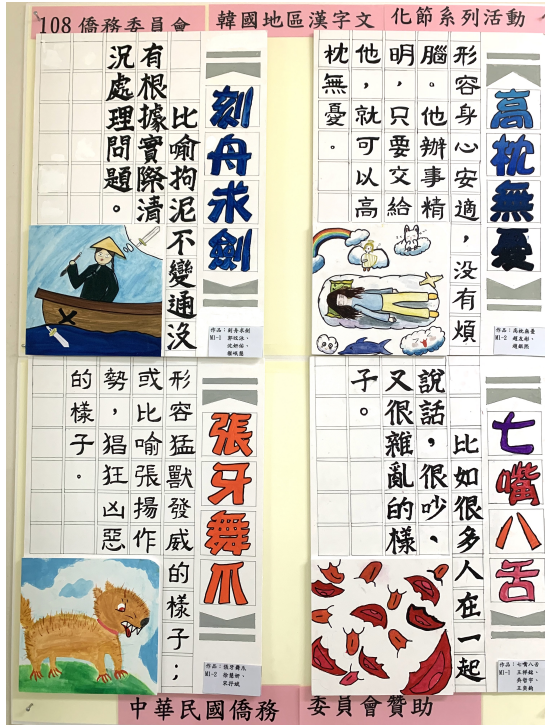 108 僑務委員會 韓國地區漢字文化節系列活動
高枕無憂
形容身心安適，沒有煩
腦。他辦事精
明，只要交給
他，就可以高
枕無憂。
作品：高枕無憂
M1-2
刻舟求劍
比喻拘泥不變通沒
有根據實際清
況處理問題。
作品：刻舟求劍
M1-1
七嘴八舌
比如很多人在一起
說話，很吵、
又很雜亂的樣
子。
作品：七嘴八舌
M1-1
張牙舞爪
形容猛獸發威的樣子；
或比喻張揚作
勢，猖狂凶惡
的樣子。
作品：張牙舞爪
M1-2
中華民國僑務委員會贊助